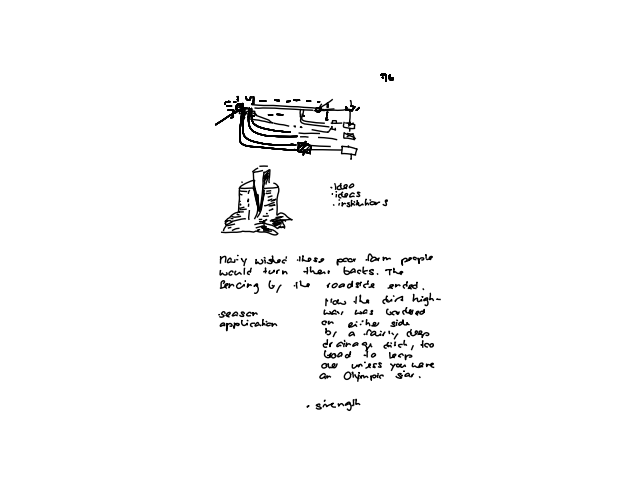 76
· idea
· ideas
· institutions
Mary wished these poor farm people
would turn their backs. The
fencing by the roadside ended.
Now the dirt high-
way was bordered
on either side
by a fairly deep
drainage ditch, too
broad to leap
over unless you were
an Olympic star.
season
application
· strength